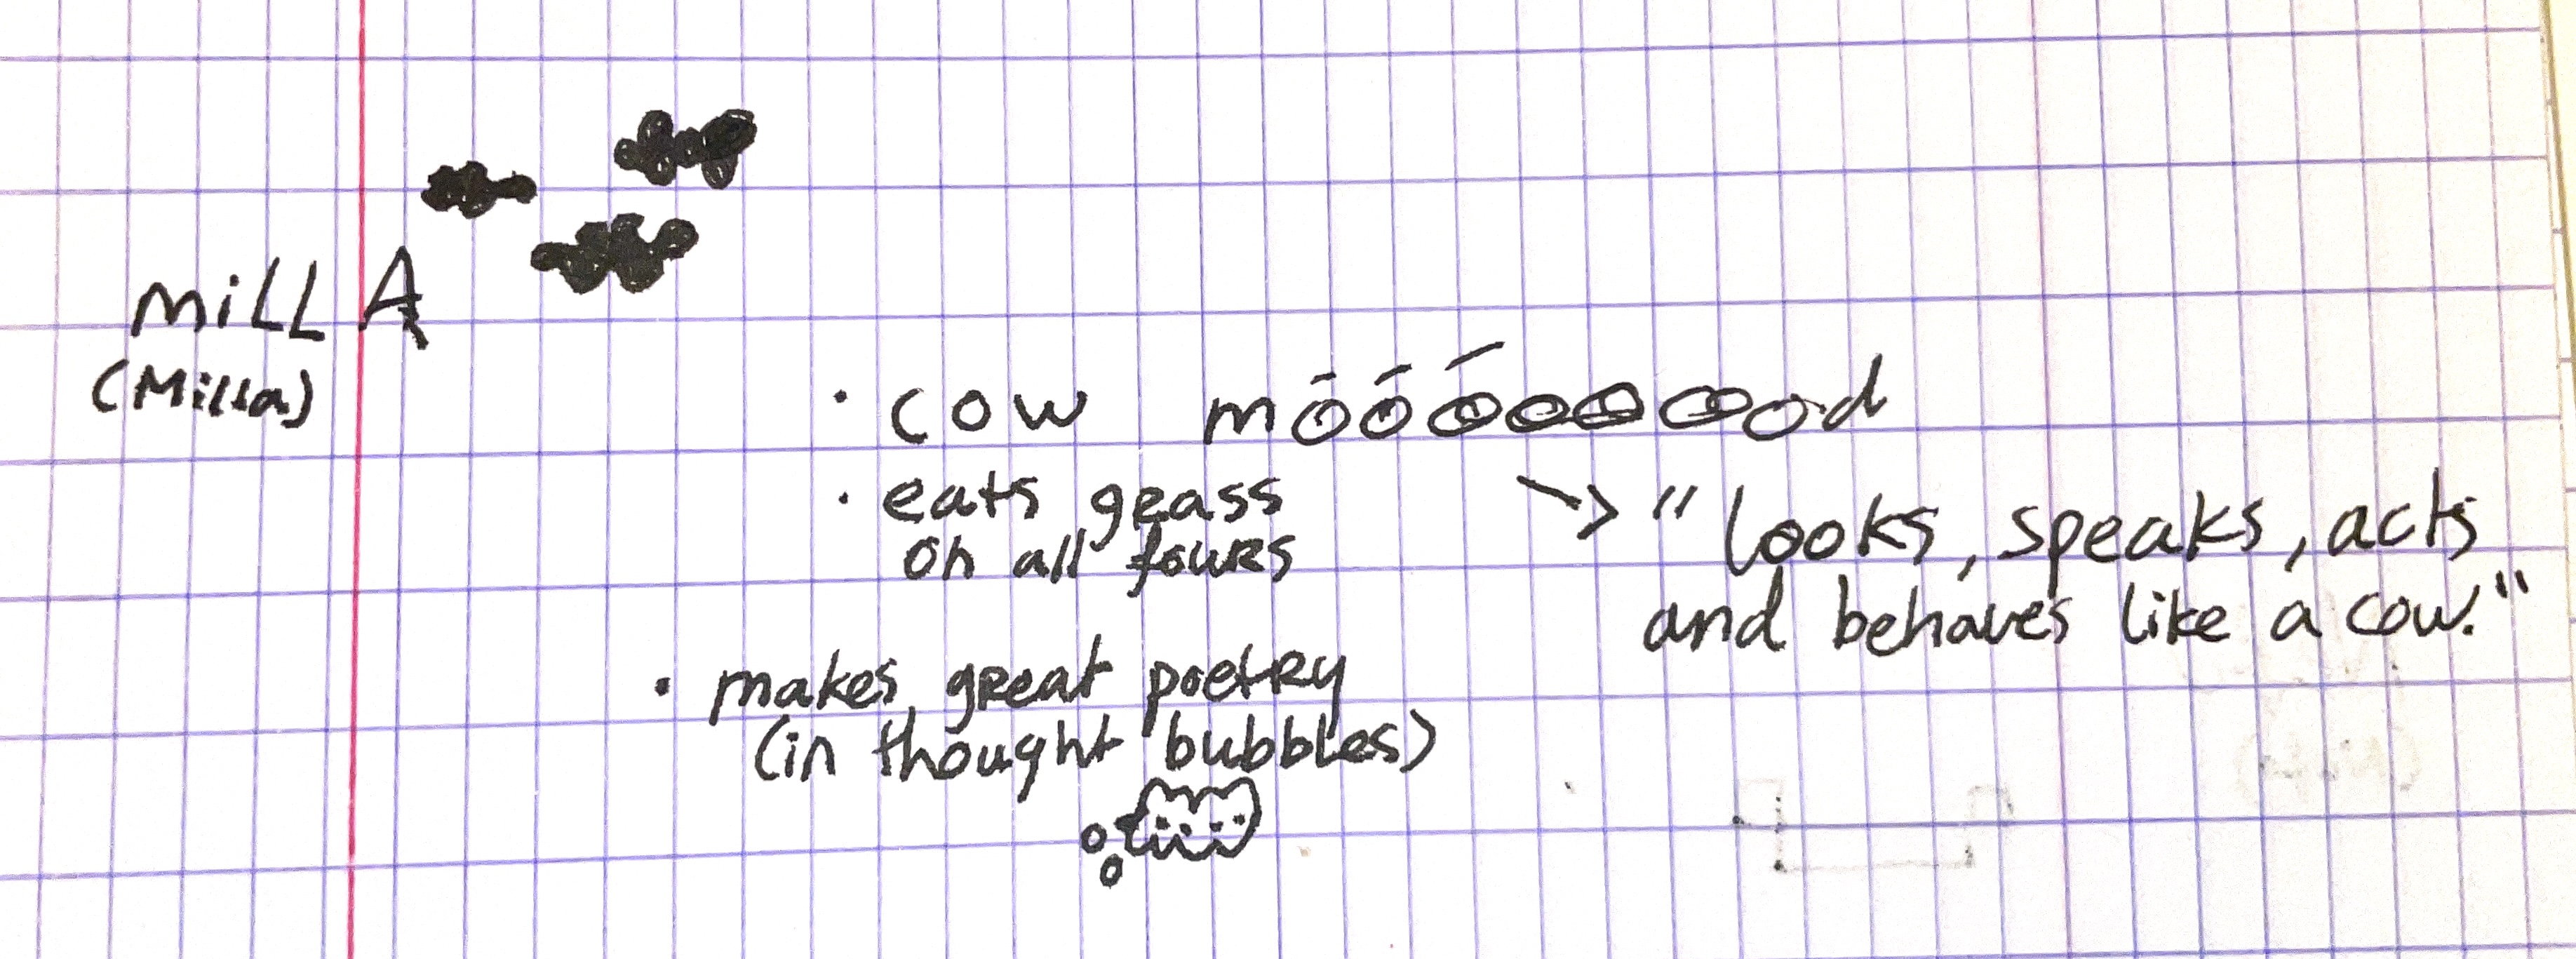 miLL A
(Milla)
· cow móóóooood
· eats grass
on all fours
→ "looks, speaks, acts
and behaves like a cow."
· makes great poetry
(in thought bubbles)